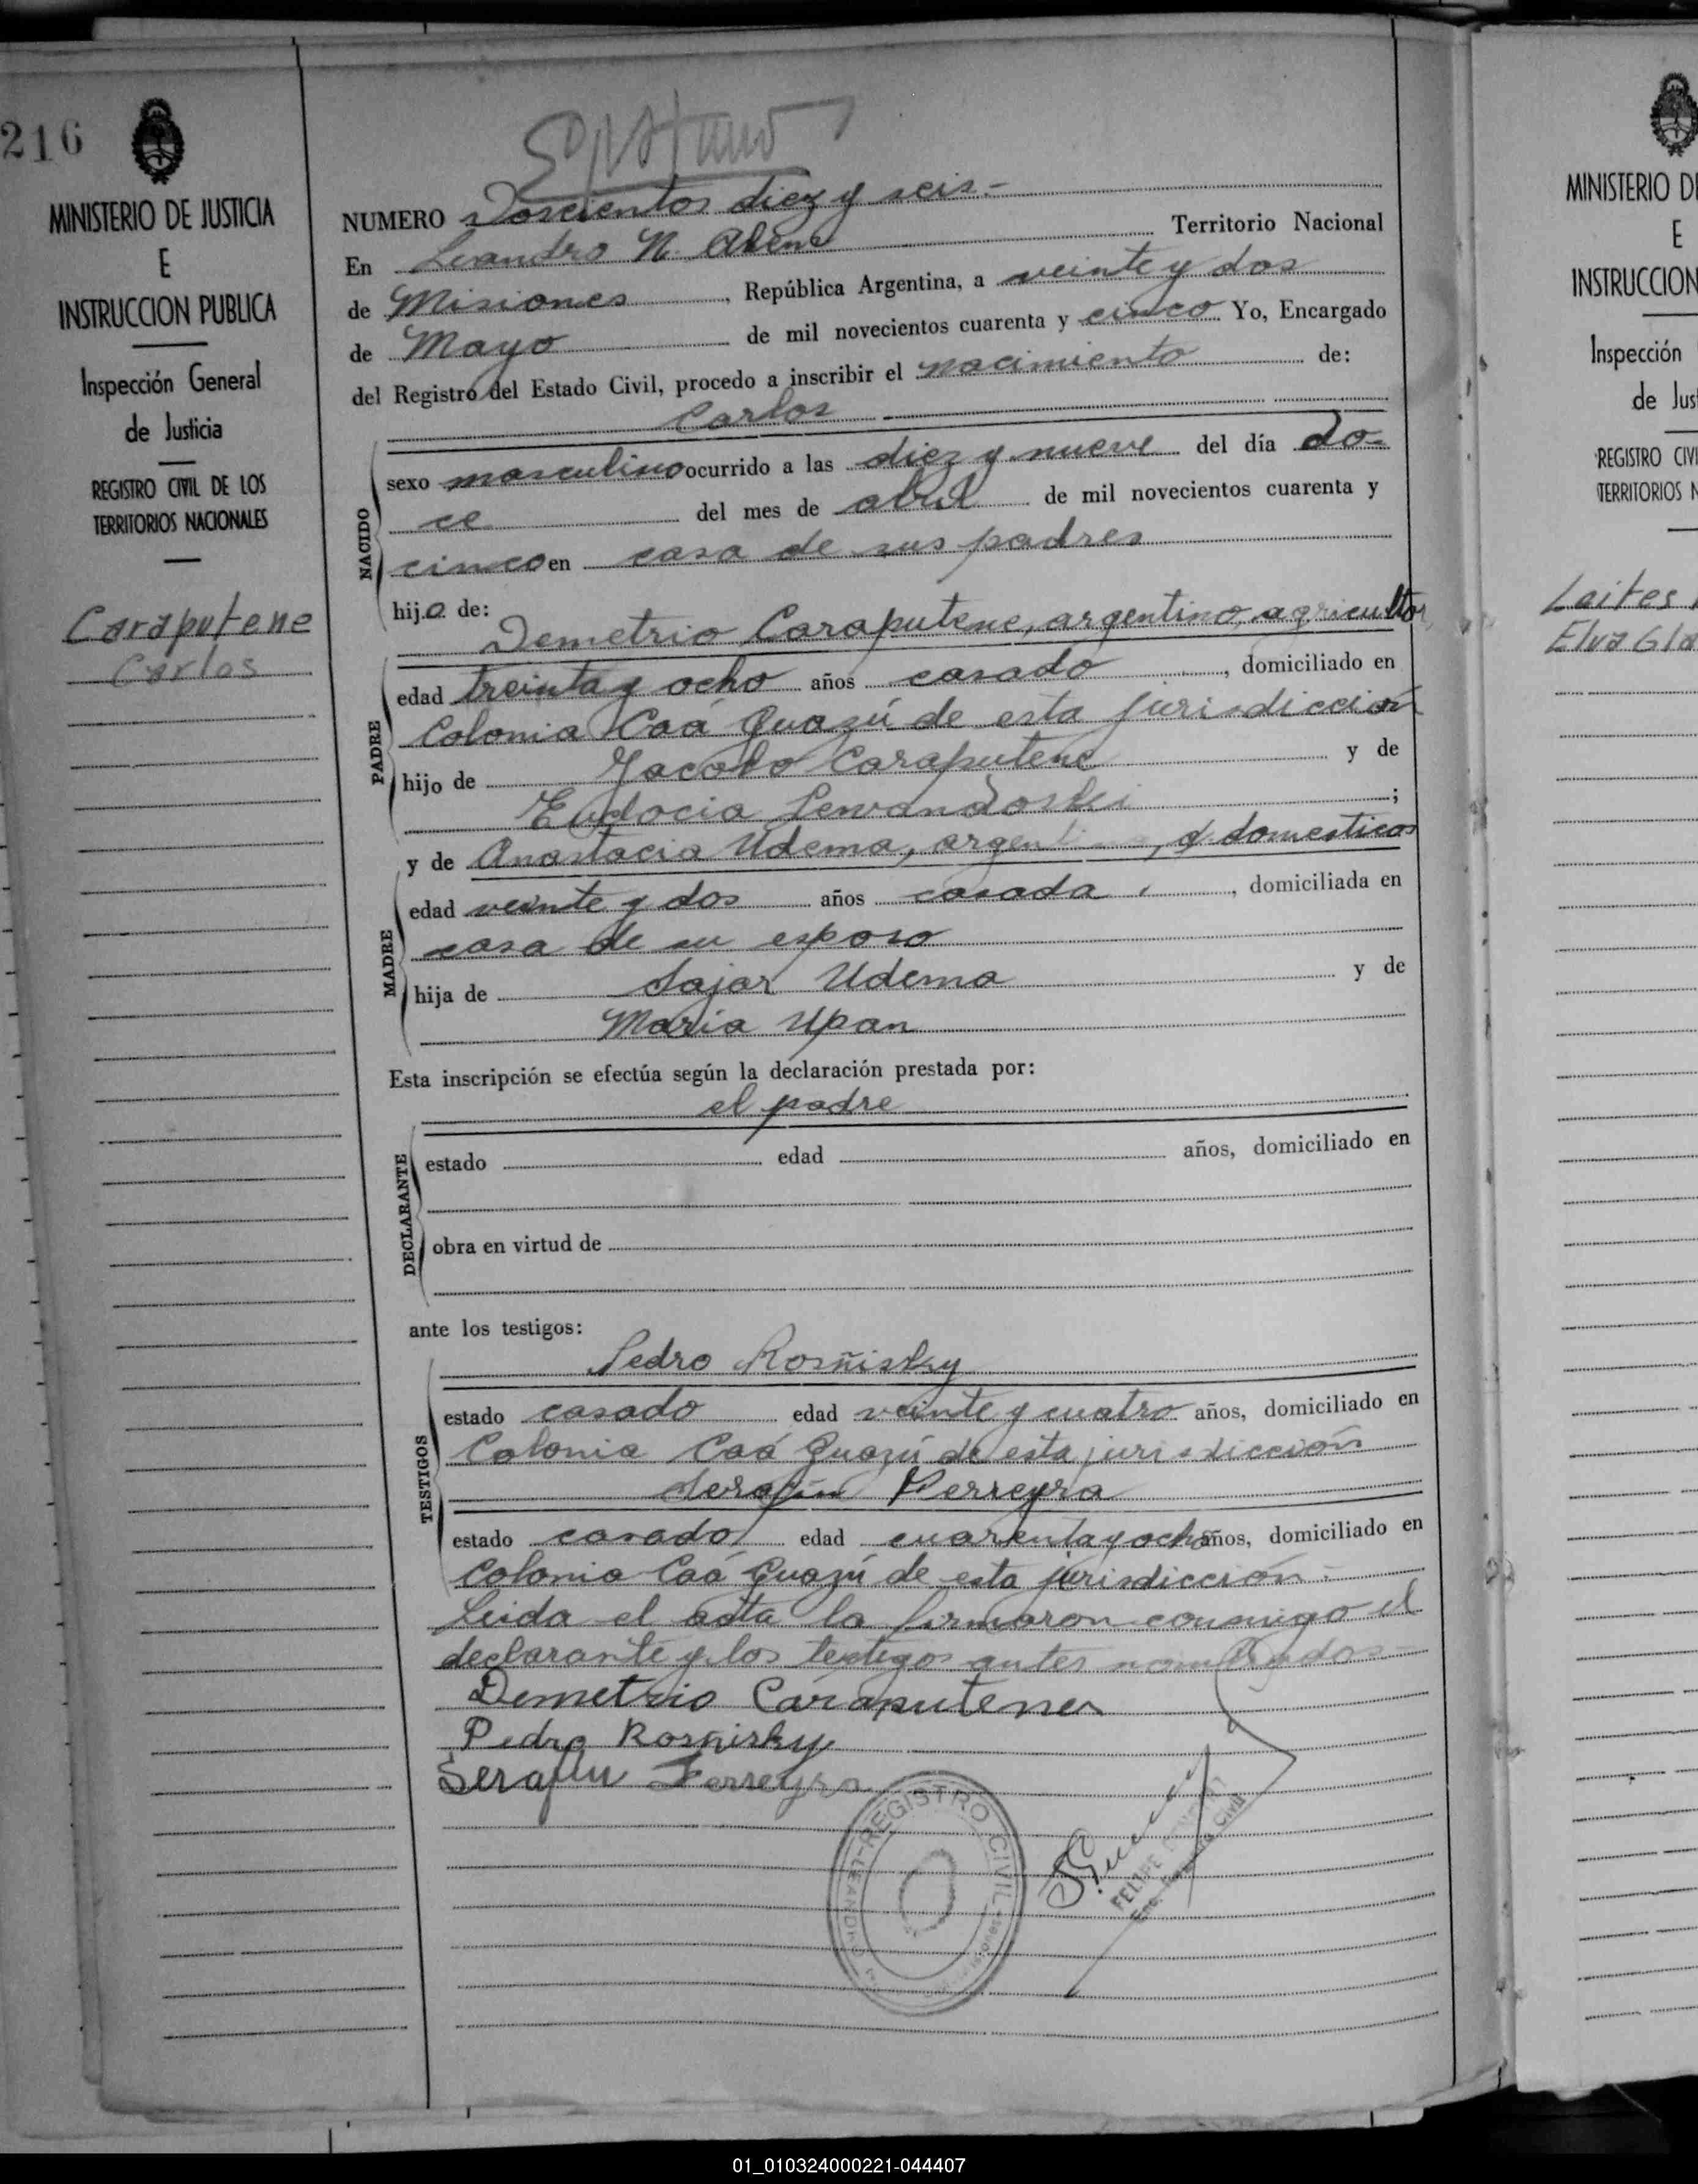 216
MINISTERIO DE JUSTICIA
E
INSTRUCCION PUBLICA
Inspección General
de Justicia
REGISTRO CIVIL DE LOS
TERRITORIOS NACIONALES
Caraputene
Carlos
NUMERO Doscientos diez y seis.-
En Leandro N. Alem Territorio Nacional
de Misiones, República Argentina, a veinte y dos
de Mayo de mil novecientos cuarenta y cinco Yo, Encargado
del Registro del Estado Civil, procedo a inscribir el nacimiento de:
Carlos
NACIDO
sexo masculino ocurrido a las diez y nueve del día do-
ce del mes de abril de mil novecientos cuarenta y
cinco en casa de sus padres
hijo de:
Demetrio Caraputene, argentino, agricultor,
PADRE
edad treinta y ocho años casado, domiciliado en
Colonia Caá Guazú de esta jurisdicción
hijo de Jacobo Caraputene y de
Eudocia Lewandoski;
y de Anastacia Udema, argentina, q. domesticos
MADRE
edad veinte y dos años casada, domiciliada en
casa de su esposo
hija de Sajar Udema y de
Maria Upan
Esta inscripción se efectúa según la declaración prestada por:
el padre
DECLARANTE
estado edad años, domiciliado en
obra en virtud de
ante los testigos:
Pedro Rosñisky
TESTIGOS
estado casado edad veinte y cuatro años, domiciliado en
Colonia Caá Guazú de esta jurisdicción
Serafín Ferreyra
estado casado edad cuarenta y ocho años, domiciliado en
Colonia Caá Guazú de esta jurisdicción.-
Leida el acta la firmaron conmigo el
declarante y los testigos antes nombrados-
Demetrio Caraputene
Pedro Rosñisky
Serafin Ferreyra
REGISTRO CIVIL
LEANDRO N.
FELIPE
Enc. Registro Civil
MINISTERIO DE
E
INSTRUCCION
Inspección
de Jus
REGISTRO CIVI
TERRITORIOS N
Laites
Elva Gla
01_010324000221-044407